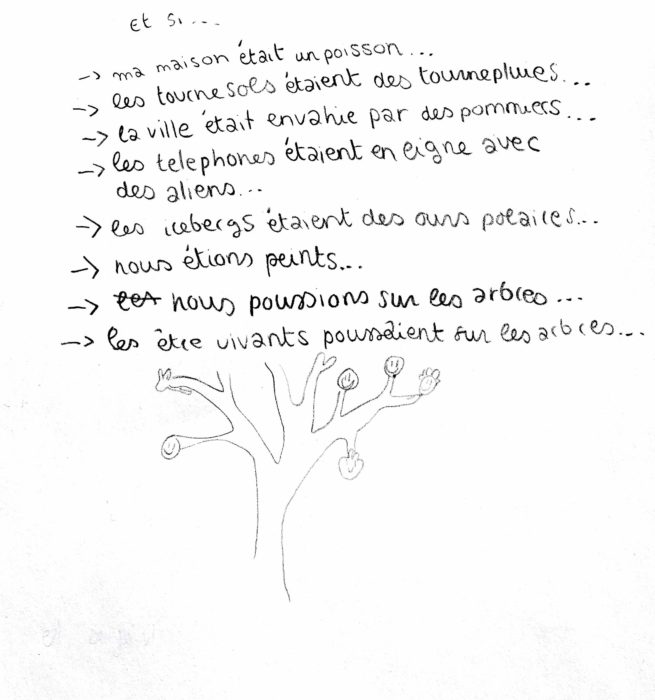 et si....
-> ma maison était un poisson...
-> les tournesols étaient des tournepluies...
-> la ville était envahie par des pommiers...
-> les telephones étaient en ligne avec
des aliens...
-> les icebergs étaient des ours polaires...
-> nous étions peints...
-> les nous poussions sur les arbres...
-> les être vivants poussaient sur les arbres...